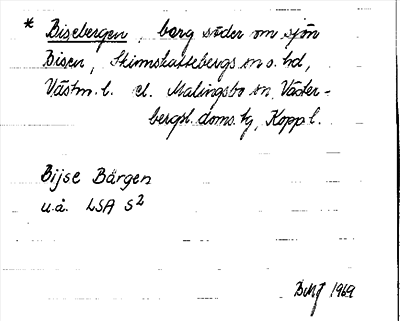 * Bisebergen, berg söder om sjön
Bisen, Skinnskattebergs sn o. hd,
Västm. l. el. Malingsbo sn, Väster-
bergsl. doms. tg, Kopp. l.
Bijse Bärgen
u.å. LSA S2
1969